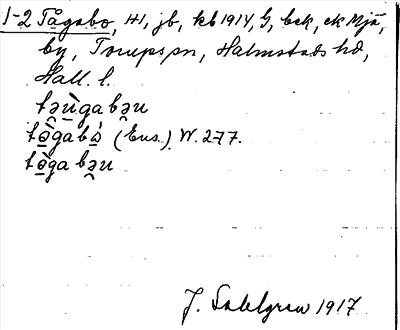 1-2 Tågabo, 1+1, jb, kb 1914, G, bck, ck Mjä,
by, Torups sn, Halmstads hd,
Hall. l.
tə̯ù̱gabə̯u
tò̱gabò̱ (Ens.) W. 277.
tò̱gabə̯u
J. Sahlgren 1917